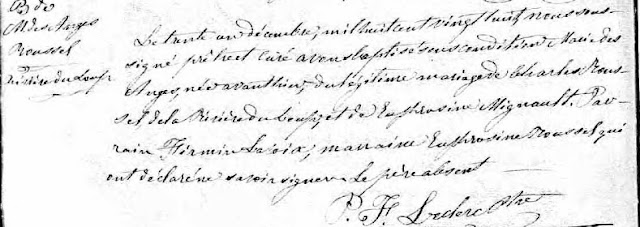 B de
M des Anges
Roussel
Rivière du Loup
Le trente un décembre, mil huit cent vingt huit nous sous
signé prêtre curé avons baptisé sous condition Marie des
Anges, née avant hier, du légitime mariage de Charles Rous
sel de la Rivière du Loup, et de Euphrosine Mignault. Par
rain Firmin Lacroix, marraine Euphrosine Roussel qui
ont déclaré ne savoir signer. Le père absent
P. F. Leclerc Ptre